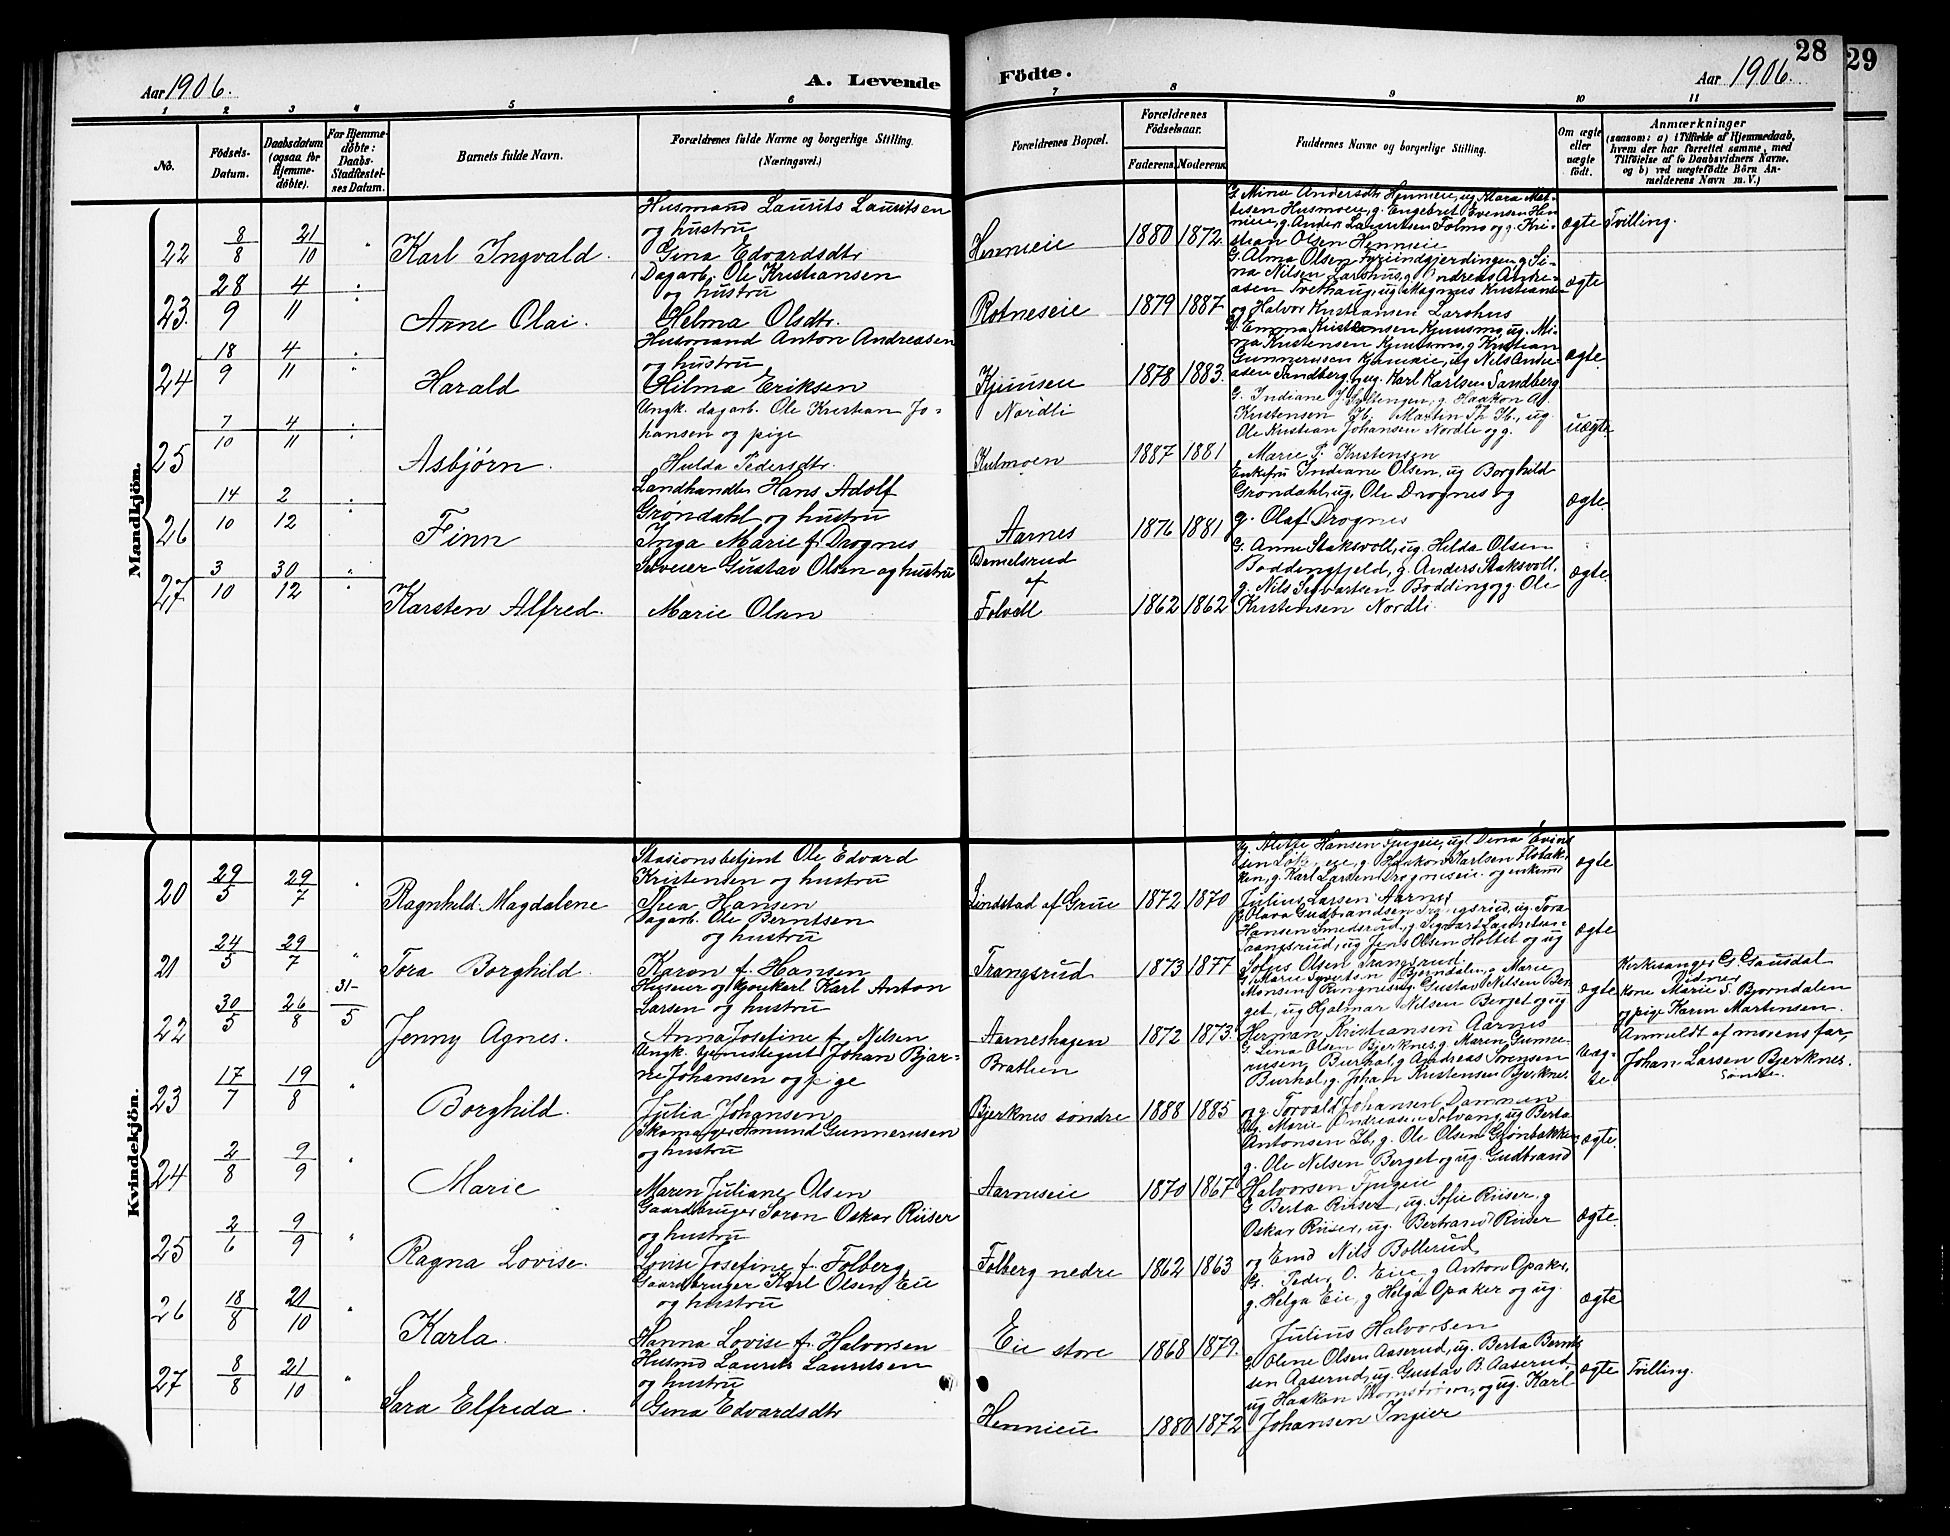 Aar 1906.
A. Levende
Födte.
Aar 1906.
28
29
1 2 3 4 5 6 7 8 9 10 11
No.
Födsels-Datum.
Daabsdatum (ogsaa for Hjemmedöbte).
For Hjemmedöbte: Daabs-Stadfæstelses Datum.
Barnets fulde Navn.
Forældrenes fulde Navne og borgerlige Stilling.
(Næringsvei.)
Forældrenes Bopæl.
Forældrenes Födselsaar.
Faderens. Moderens.
Faddernes Navne og borgerlige Stilling.
Om ægte eller uægte födt.
Anmærkninger
(saasom: a) i Tilfælde af Hjemmedaab, hvem der har forrettet samme, med Tilföielse af to Daabsvidners Navne. og b) ved uægtefödte Börn Anmelderens Navn m. V.)
Mandkjön.
22 8/8 21/10 " Karl Ingvald.
Husmand Laurits Lauritsen
og hustru
Gina Edvardsdtr
Hennieie 1880 1872
G. Mina Andersdtr Hennieie, ug Klara Mat-
tisen Husmoeie, g. Engebret Evensen Hen-
nieie, g. Anders Lauritsen Folmo og g. Kri-
stian Olsen Hennieie
ægte Tvilling.
23. 28/9 4/11 " Arne Olai.
Dagarb. Ole Kristiansen
og hustru
Helma Olsdtr.
Rotneseie 1879 1887
G. Alma Olsen
na Nilsen Larshus, g Andreas Andre-
asen Trethaug, ug Magnus Kristiansen
og Halvor Kristiansen Larshus
ægte
24 18/9 4/11 " Harald
Husmand Anton Andreasen
og hustru
Hilma Eriksen
Kjuusen 1878 1883.
G. Emma Kristensen Kjuusmo, ug. Mi-
na Kristensen Kjuusmo, g Kristian
Gunnerusen Kjuuseie, ug Nils Andre-
asen Sandberg, og ug. Karl Karlsen Sandberg
ægte.
25 7/10 4/11 " Asbjørn.
Ungk. dagarb. Ole Kristian Jo-
hansen og pige
Hulda Pedersdtr.
Nordli
Kulmoen 1887 1881
G. Indiane J. , g. Haakon A.
Kristensen Ib, Martin Ib., ug.
Ole Kristian Johansen Nordli og g.
Marie P. Kristensen
uægte
26 14/10 2/12 " Finn
Landhandler Hans Adolf
Grøndahl og hustru
Inga Marie f. Drognes
Aarnes 1876 1881
Enkefru Indiane Olsen, ug Borghild
Grøndahl, ug. Ole Drognes og
g. Olaf Drognes
ægte
27 3/10 30/12 " Karsten Alfred.
Selveier Gustav Olsen og hustru
Marie Olsen
Danielsrud
af
Folvell 1862 1862
G. Anne Staksvoll, ug. Hilda Olsen
Boddingfjeld, g. Anders Staksvoll,
g. Nils Sigvartsen Bodding og g. Ole
Kristensen Nordli.
ægte
Kvindekjön.
20 29/5 29/7 " Ragnhild Magdalene
Stasionsbetjent Ole Edvard
Kristensen og hustru
Thea Hansen
Lindstad af Grue 1872 1870
G. Alette Hansen Tjugeie, ug. Dena Evind-
sen eie, g. Haakon Karlsen Flotak-
ken, g. Karl Larsen Drogneseie og enkem.
Julius Larsen Aarnes
ægte
21 24/5 29/7 " Tora Borghild.
Dagarb. Ole Berntsen
og hustru
Karen f. Hansen
Trangsrud 1873 1877
G. Olava Gudbrandsen Trangsrud, ug. Tora
Hansen Smedsrud, g Sigvart Lauritsen
Trangsrud, ug Jens Olsen Holtet og ug
Sofus Olsen Trangsrud.
ægte
22 30/5 26/8 31/5 Jenny Agnes.
Huseier og kjørekarl Karl Anton
Larsen og hustru
Anna Josefine f. Nilsen
Aarneshagen 1872 1873.
G. Marie Syversen Bjørndalen, g Marie
Monsen Ringnes, g. Gustav Nilsen Ber-
get, ug Hjalmar Nilsen Berget og ug
Herman Kristiansen Aarnes
ægte
Kirkesanger G. Gausdal
Vidner
Kone Marie S. Bjørndalen
og pige Karen Martensen.
23 17/7 19/8 " Borghild.
Ungk. Johan Bjar-
ne Johansen og pige
Julia Johansen
Brathen
Bjerknes søndre 1888 1885
G. Lina Olsen Bjerknes, g. Maren Gunne-
rusen Burhol, g Andreas Sørensen
Burhol, g. Johan Kristensen Bjerknes
og g. Torvald Johansen Dammen
Uæg-
te.
Anmeldt af morens far,
Johan Larsen Bjerknes.
søndre.
24 2/8 9/9 " Marie
Skomager Amund Gunnerusen
og hustru
Maren Juliane Olsen
Aarneseie 1870 1867
Ug. Marie Andreasen Solvang, ug Berta
Antonsen Ib, g. Ole Olsen Grønbakken
g. Ole Nilsen Berget og ug. Gudbrand
Halvorsen Tjugeie
ægte.
25 2/6 9/9 " Ragna Lovise.
Gaardbruger Søren Oskar Riiser
og hustru
Lovise Josefine f. Folberg
Folberg nedre 1862 1863
G Berta Riiser, ug. Sofie Riiser, g
Oskar Riiser, ug. Bertrand Riiser
og Emd Nils Bollerud,
ægte.
26 18/8 21/10 " Karla.
Gaardbruger Karl Olsen Eie
og hustru
Hanna Lovise f. Halvorsen
Eie store 1868 1879.
G. Peder O. Eie, g Anton Opaker,
g. Helga Eie, g Helga Opaker og ug.
Julius Halvorsen
ægte
27 8/8 21/10 " Sara Elfrida.
Husmd Laurits Lauritsen
og hustru
Gina Edvardsdtr
Hennieie 1880 1872
G Oline Olsen Aaserud, ug. Berta Bernt-
sen Aaserud, ug. Gustav B. Aaserud
ug Haakon , og ug. Karl
Johansen Ingier
ægte Tvilling.